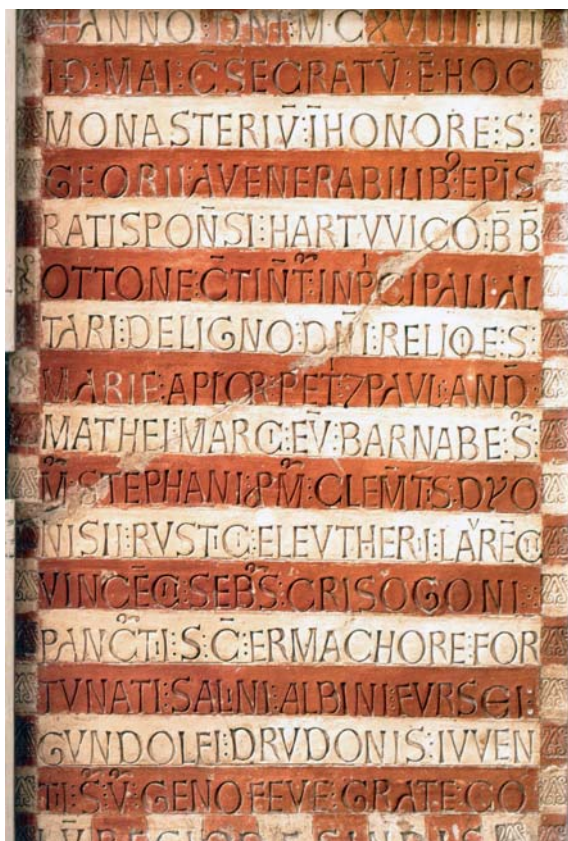 +ANNO: DN̄I: M C XVIIII IIII
ID̄: MAI: C̄SECRATV̄: Ē: HOC
MONASTERIV̄: ĪHONORE: S:
GEORII: A VENERABILIB⁹: EPĪS
RATISPOÑSI: HARTVVICO: B̄B̄
OTTONE C̄TIN̄T: INP̄CIPALI: AL
TARI: DE LIGNO: DN̄I: RELIQ̄E: S:
MARIE: APL̄OR PET⁊ PAVL: AND̄
MATHEI: MARCI: EV̄: BARNABE: S̄:
M̄: STEPHANI: P̄M̄: CLEM̄T: S: DYO
NISII: RVSTICI: ELEVTHERII: LAVRĒCII
VINCĒCII: SEB̄S: CRISOGONI:
PANC̄TI: S: C̄: ERMACHORE FOR
TVNATI: SALINI: ALBINI: FVRSEI:
GVNDOLFI: DRVDONIS: IVVEN
TI: S̄: V̄: GENOFEVE: GRATE CO